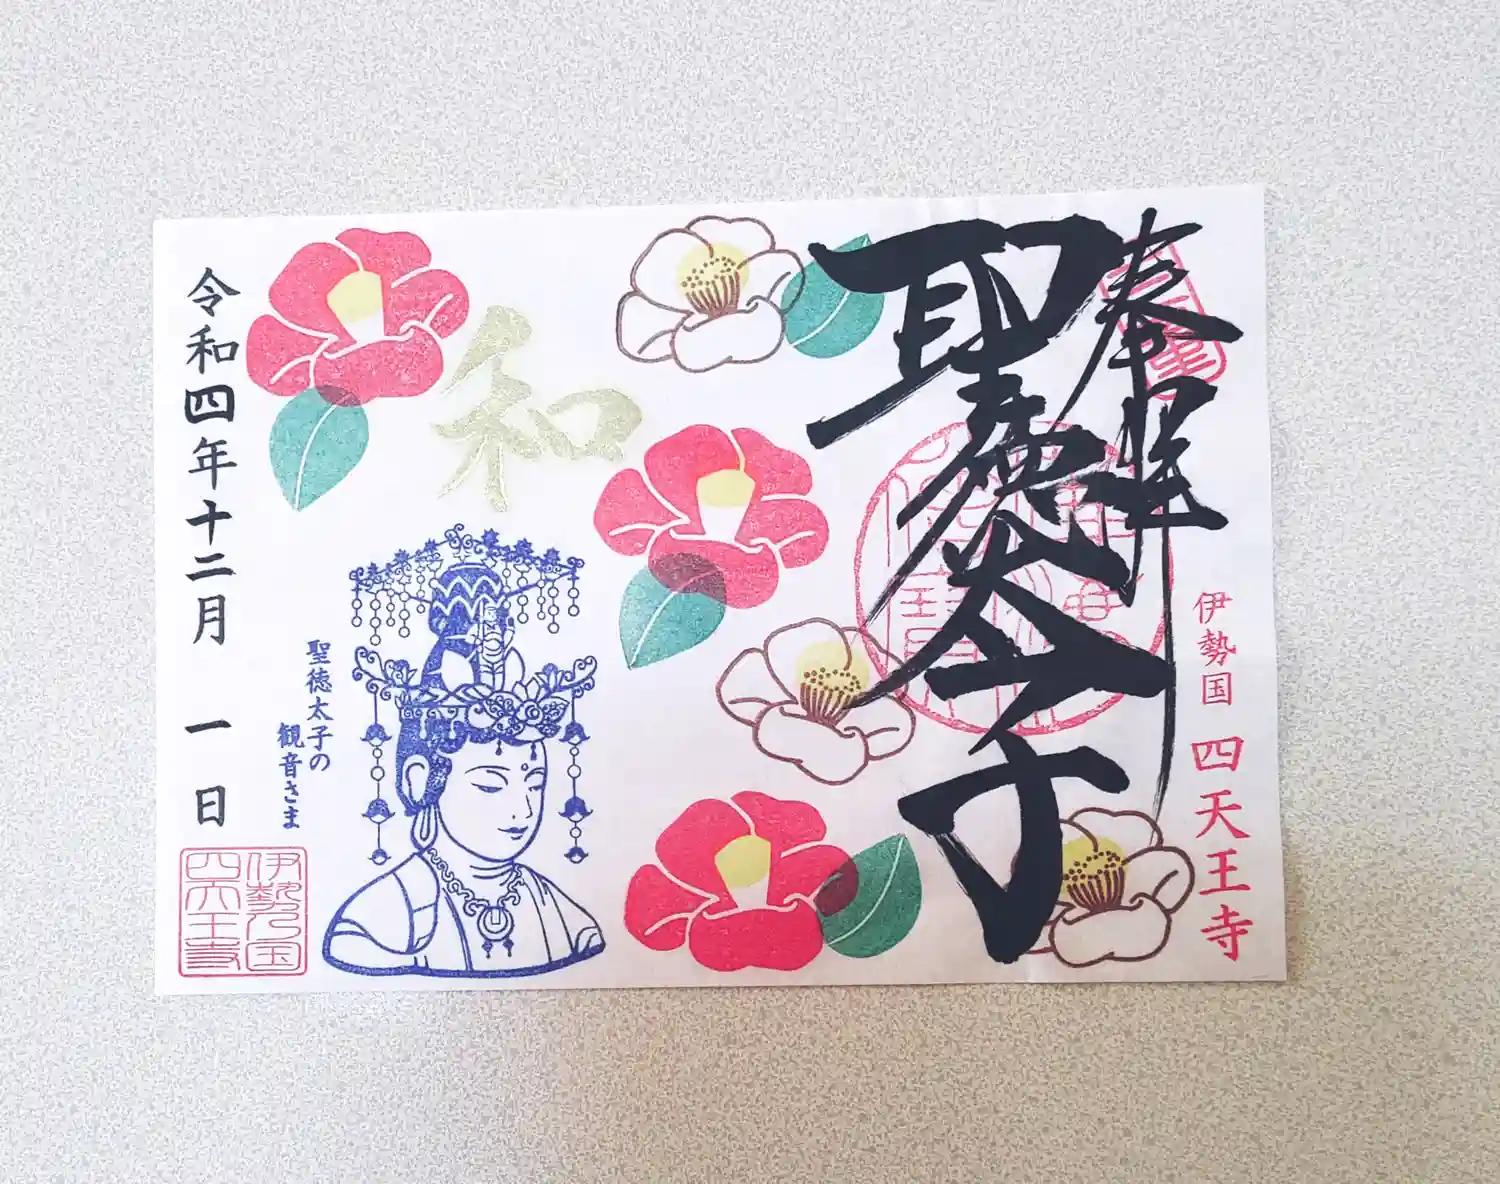 奉拝
聖徳太子
伊勢国 四天王寺
和
聖徳太子の
観音さま
令和四年十二月 一日
伊勢国
四天王寺